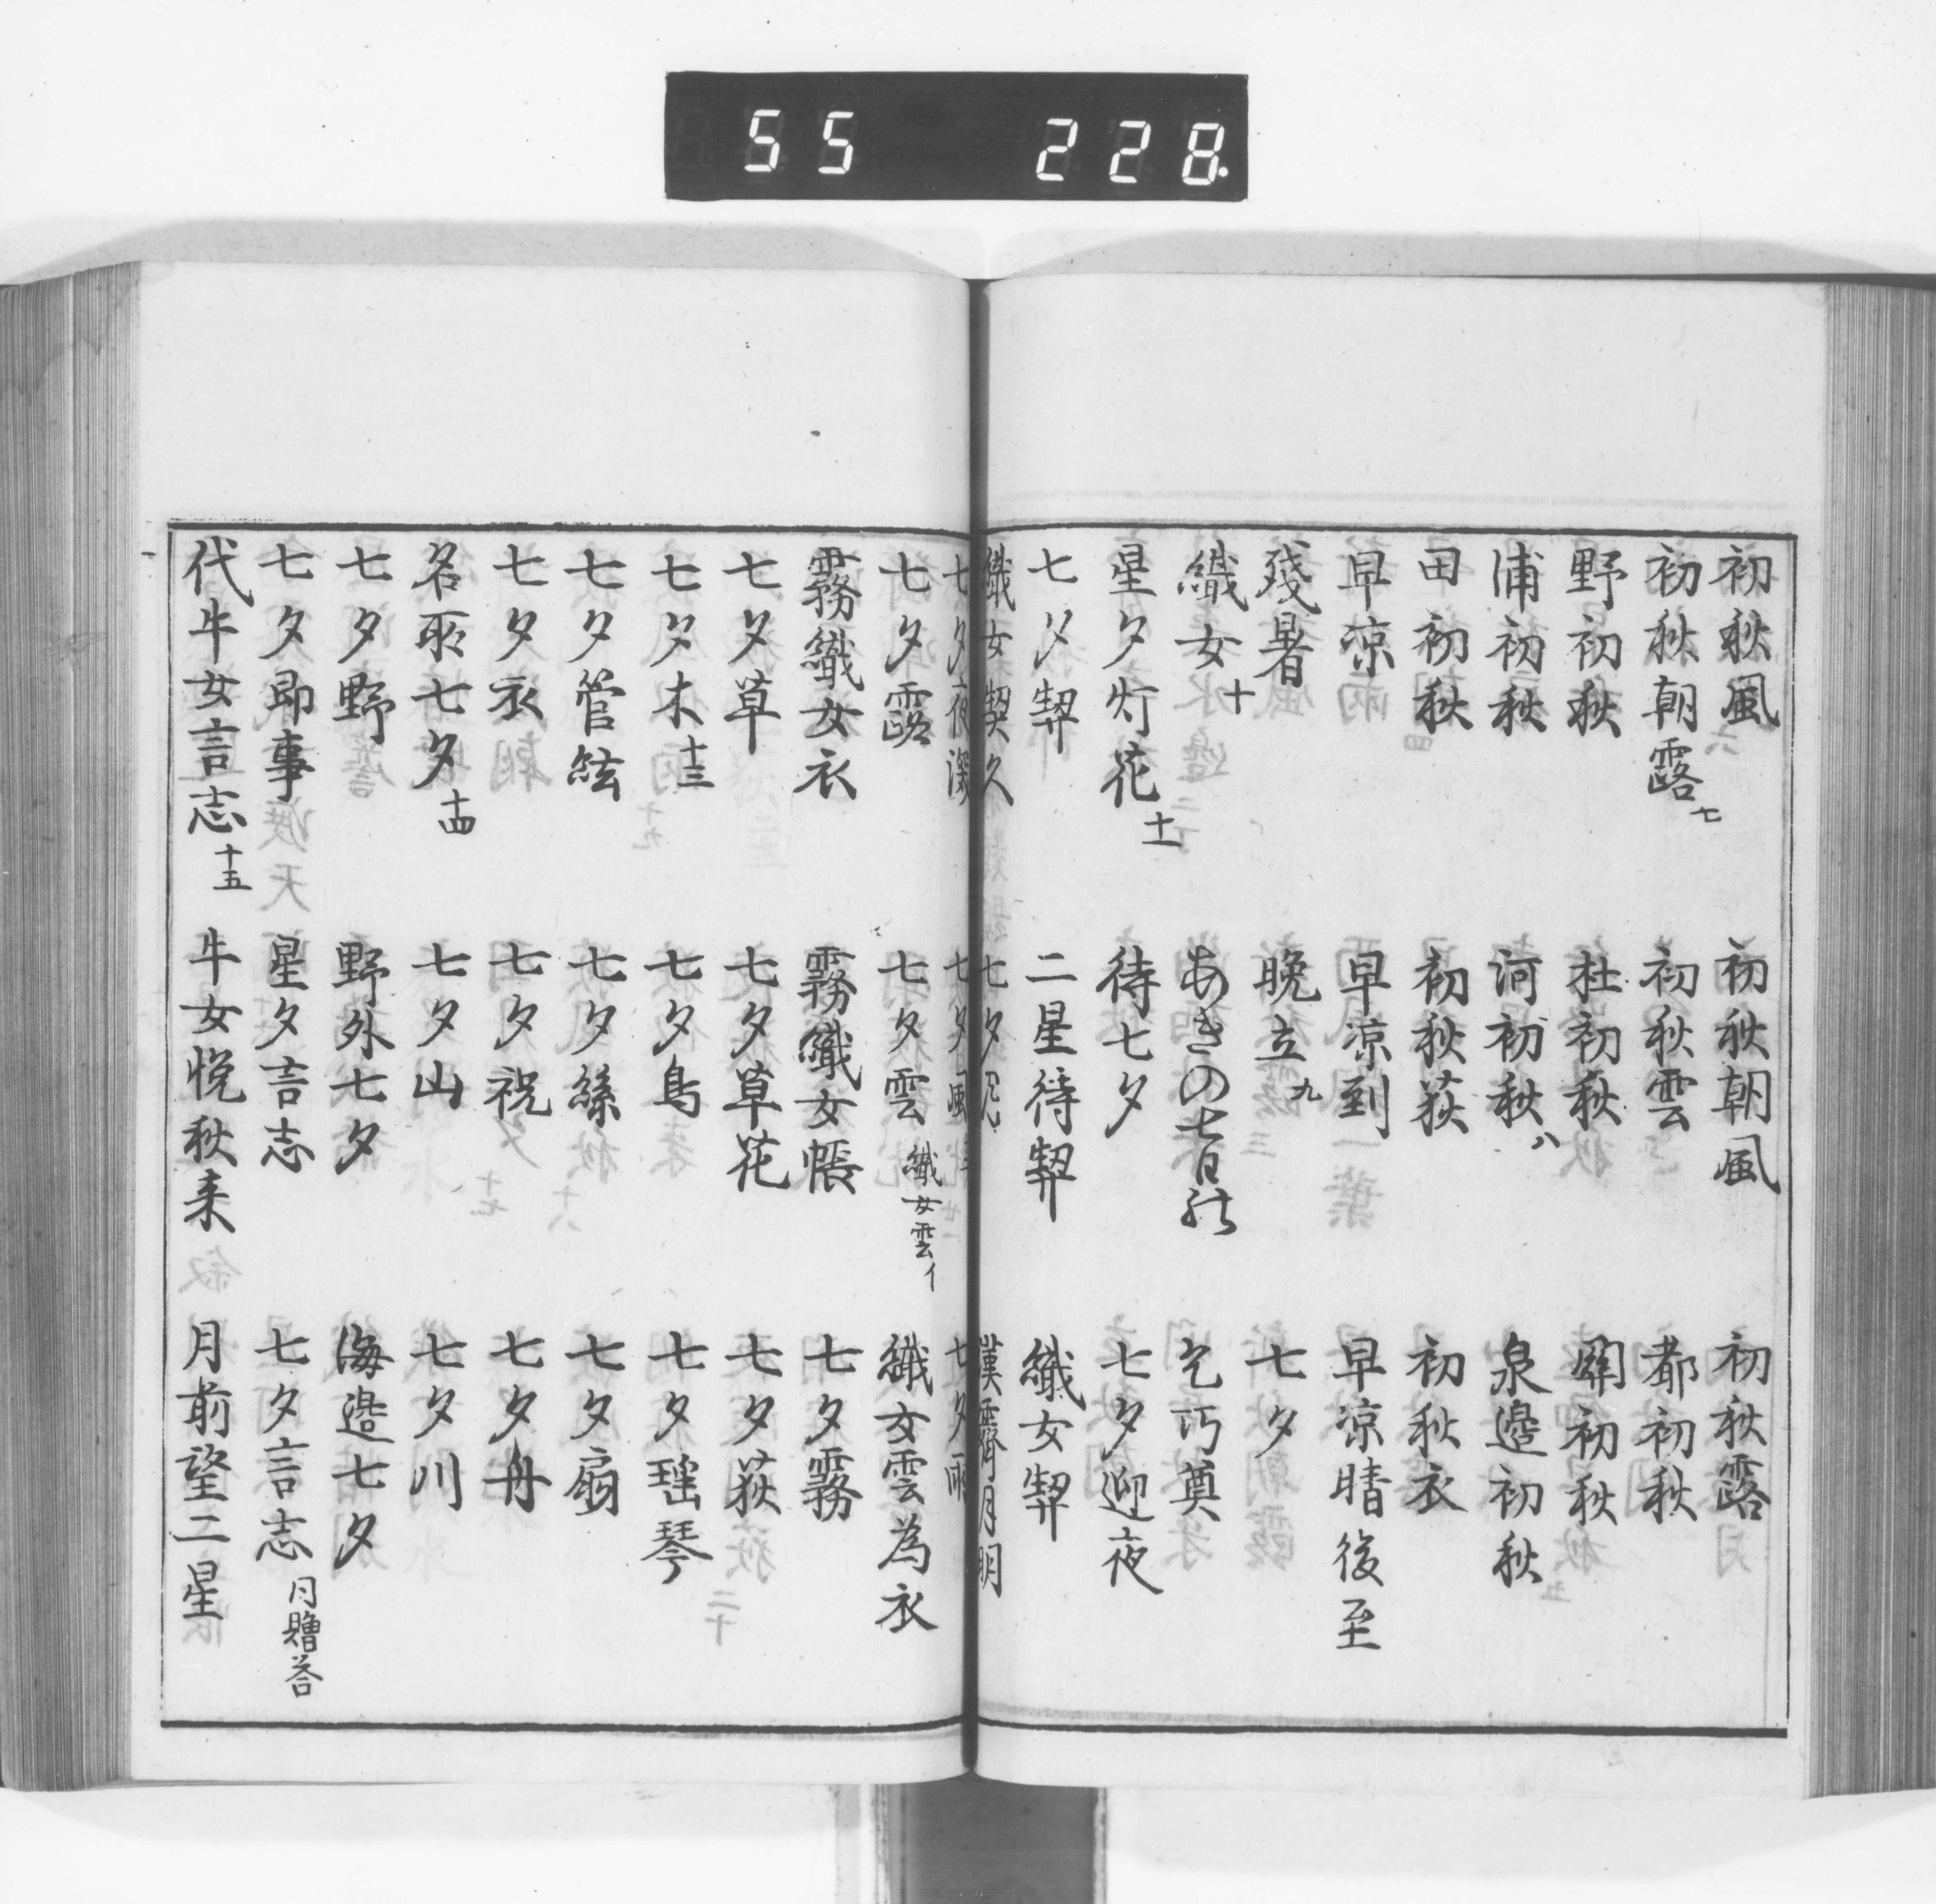 55 228
初秋風 初秋朝風 初秋露
初秋朝露 七 初秋雲 都初秋
野初秋 杜初秋 関初秋
浦初秋 河初秋 八 泉邉初秋
田初秋 初秋荻 初秋衣
早凉 早凉到 早凉晴後至
残暑 晩立 九 七夕
織女 十 あきの七日 乞巧奠
星夕灯花 十一 待七夕 七夕迎夜
七夕契 二星待契 織女契
織女契久 七夕 漢霽月明
七夕夜深 七夕風 七夕雨
七夕露 七夕雲 織女雲イ 織女雲為衣
霧織女衣 霧織女帳 七夕霧
七夕草 七夕草花 七夕荻
七夕木 十三 七夕鳥 七夕瑶琴
七夕管絃 七夕絲 七夕扇
七夕衣 七夕祝 七夕舟
名所七夕 十四 七夕山 七夕川
七夕野 野外七夕 海邉七夕
七夕即事 星夕言志 七夕言志 同贈答
代牛女言志 十五 牛女悦秋来 月前望二星